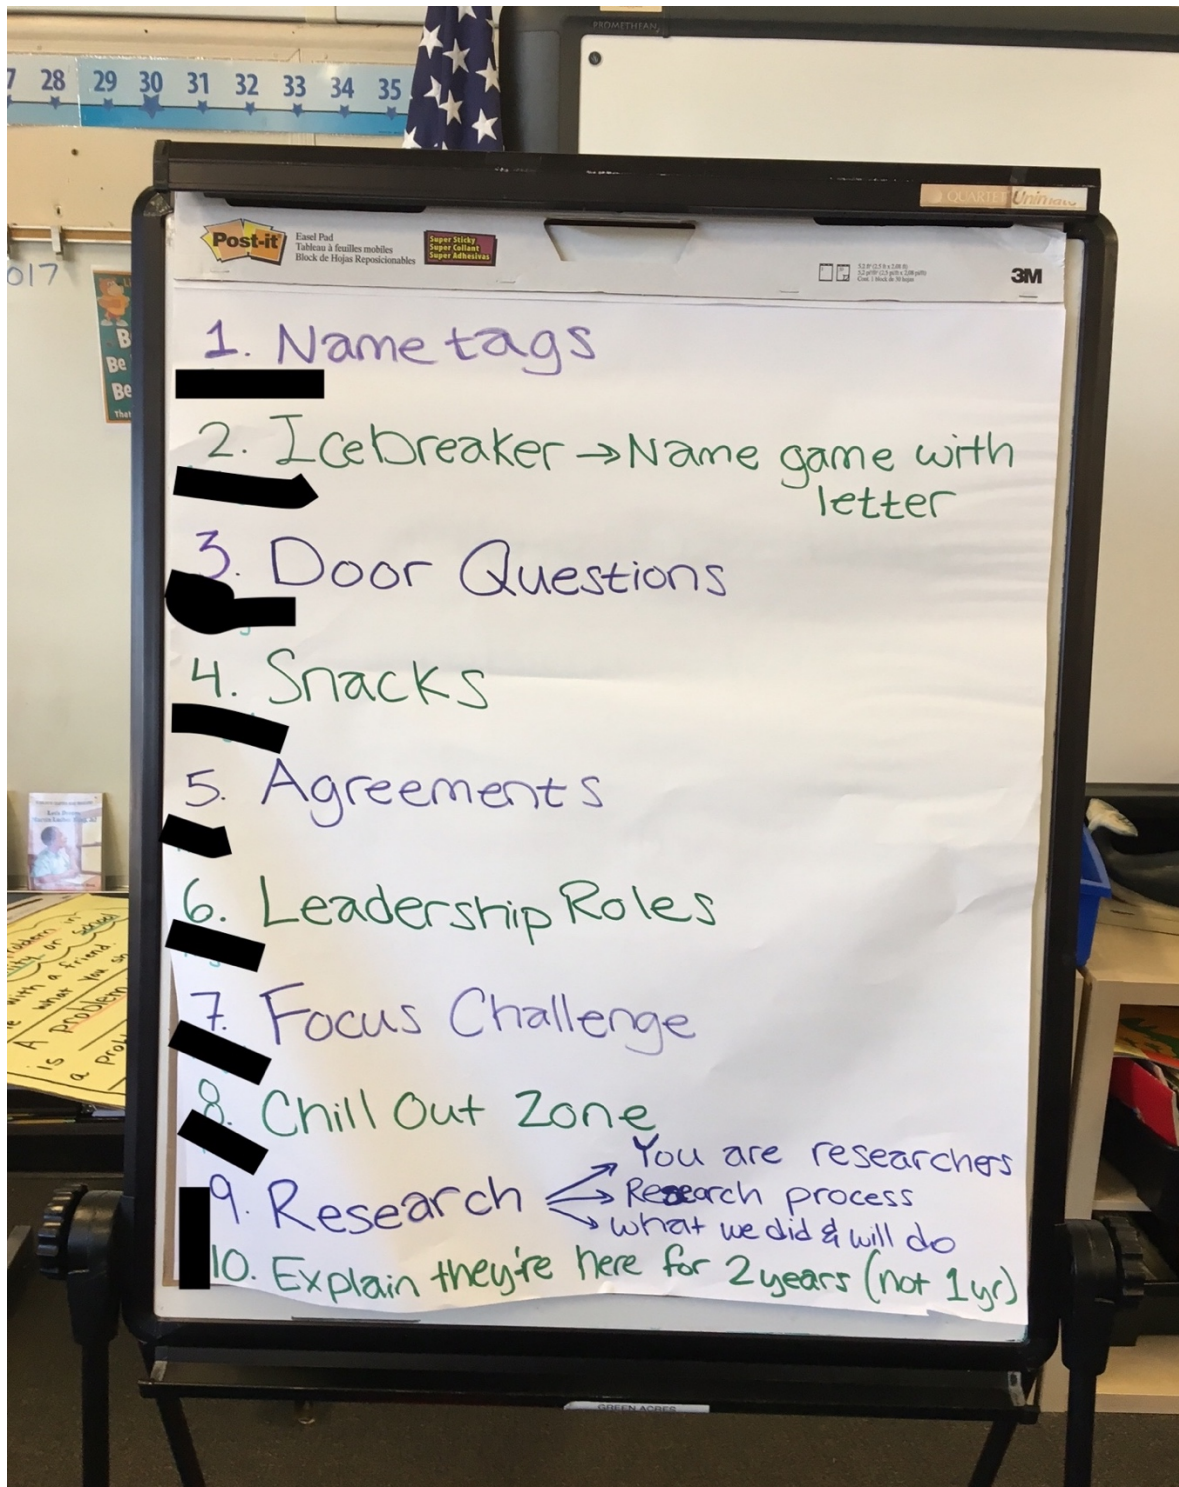 PROMETHEAN
28 29 30 31 32 33 34 35
QUARTET
Post-it
Easel Pad
Tableau à feuilles mobiles
Block de Hojas Reposicionables
Super Sticky
Super Collant
Super Adhesivas
3M
017
B
Be
Be
That
1. Name tags
2. Icebreaker → Name game with
letter
3. Door Questions
4. Snacks
5. Agreements
6. Leadership Roles
7. Focus Challenge
8. Chill Out Zone
9. Research → You are researchers
→ Research process
→ What we did & will do
10. Explain they're here for 2 years (not 1 yr)
with a friend.
what you
A problem
is
a
GREEN ACRES